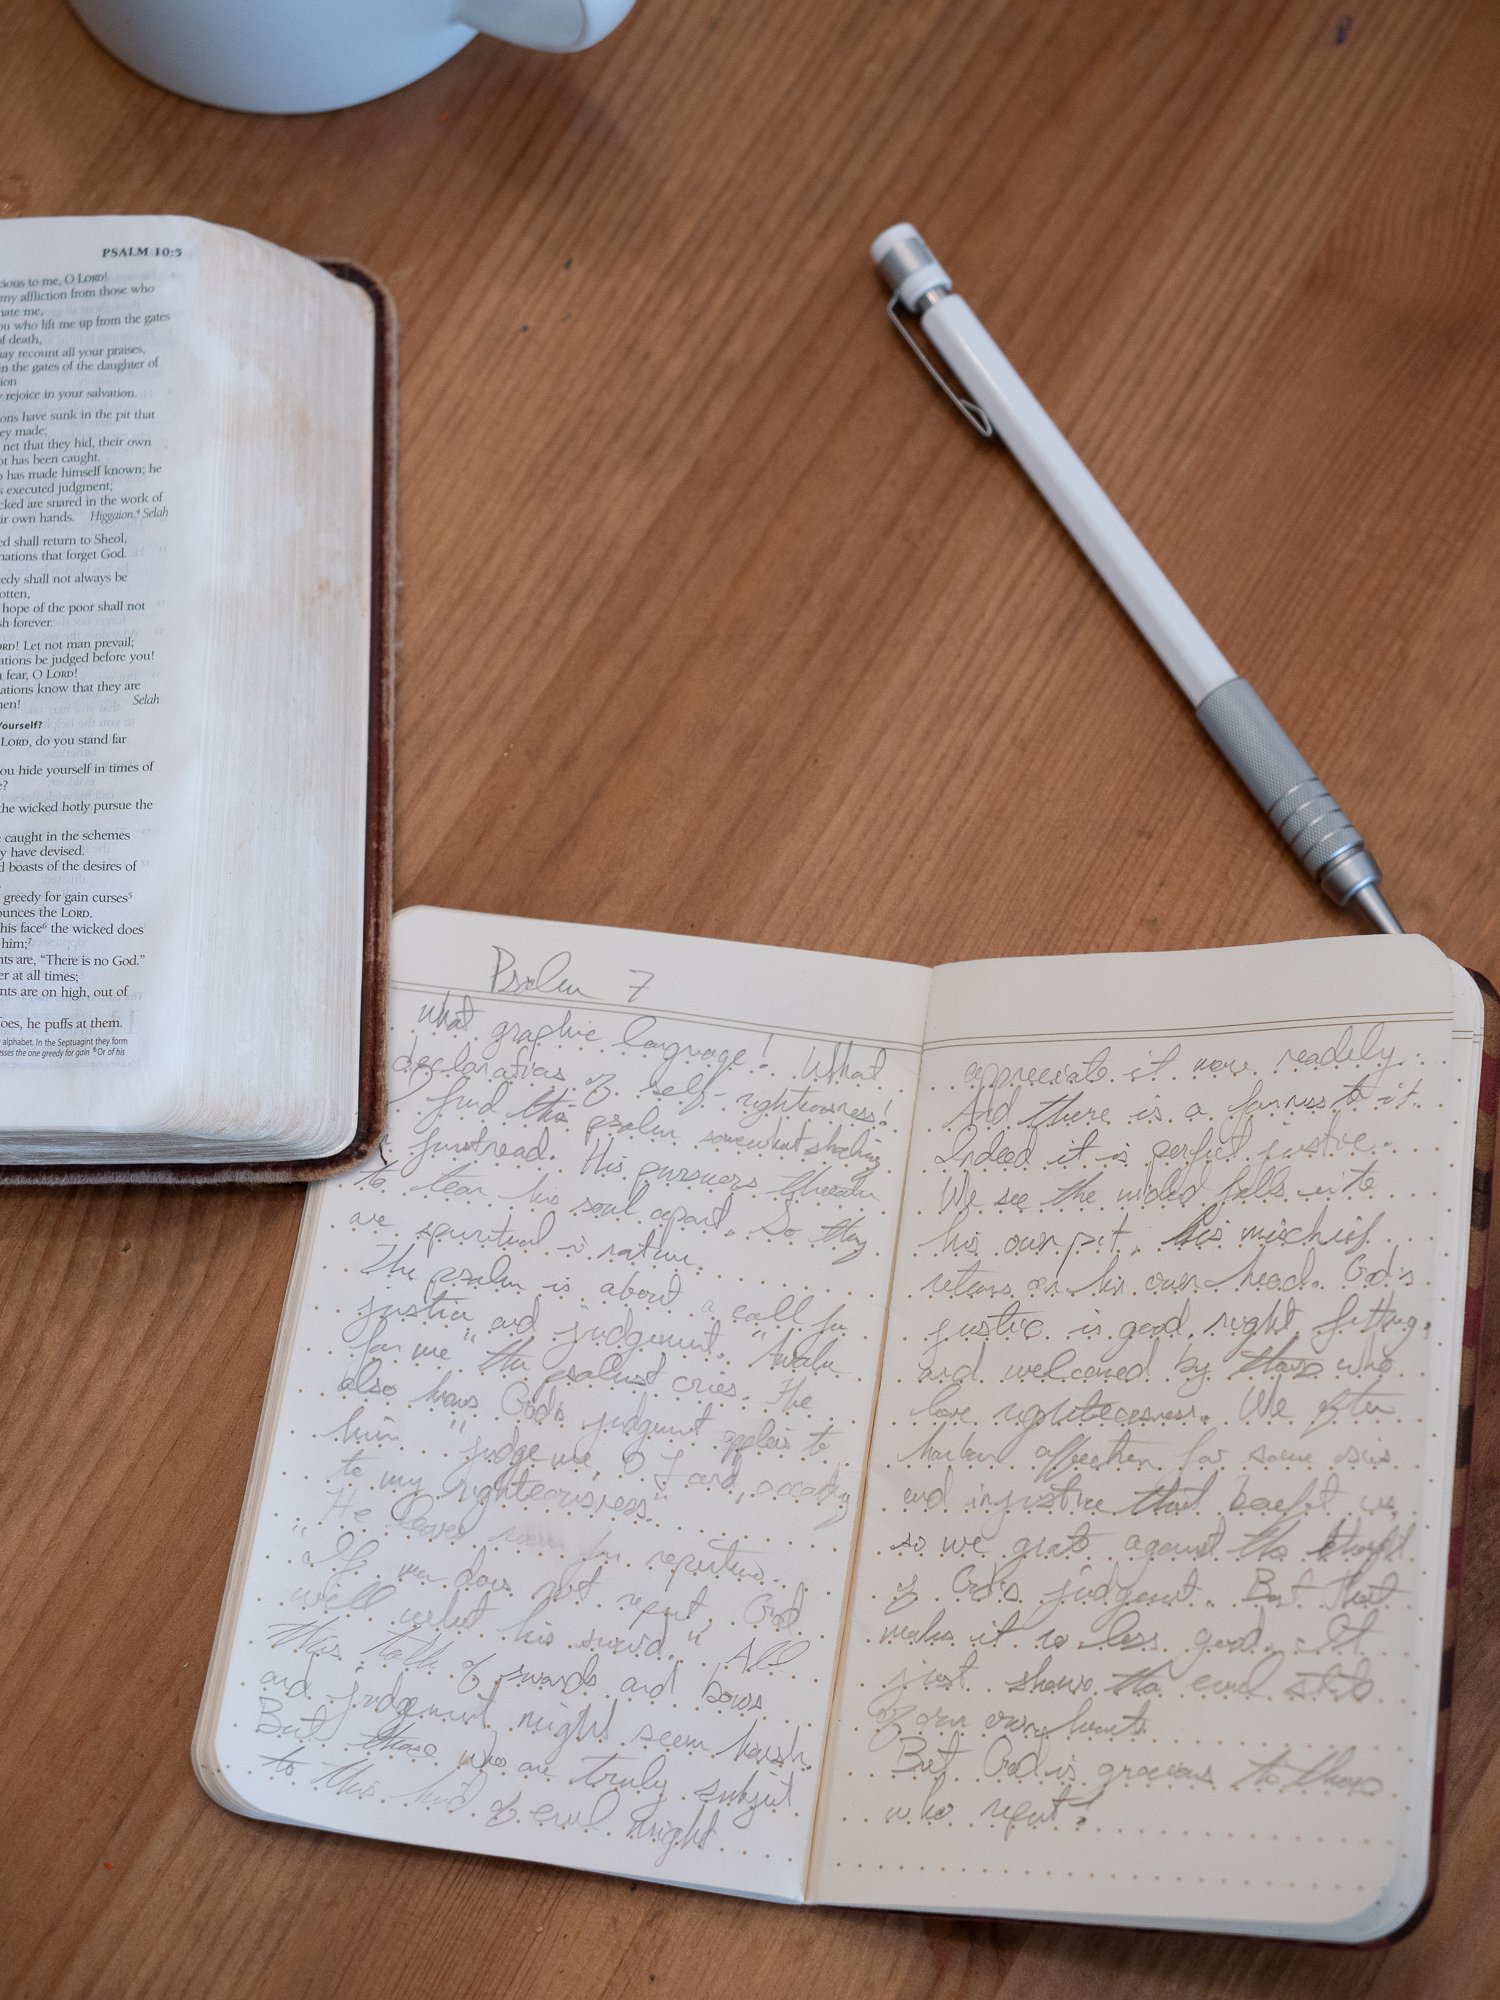 PSALM 10:5
cious to me, O LORD!
my affliction from those who
hate me,
ou who lift me up from the gates
of death,
may recount all your praises,
in the gates of the daughter of
ion
rejoice in your salvation.
ons have sunk in the pit that
ey made;
net that they hid, their own
ot has been caught.
has made himself known; he
s executed judgment;
cked are snared in the work of
ir own hands. Higgaion.⁴ Selah
ed shall return to Sheol,
nations that forget God.
edy shall not always be
otten,
hope of the poor shall not
sh forever.
ORD! Let not man prevail;
ations be judged before you!
fear, O LORD!
ations know that they are
en! Selah
Yourself?
LORD, do you stand far
ou hide yourself in times of
e?
the wicked hotly pursue the
caught in the schemes
y have devised.
d boasts of the desires of
greedy for gain curses⁵
ounces the LORD.
his face⁶ the wicked does
him;⁷
nts are, “There is no God.”
er at all times;
nts are on high, out of
foes, he puffs at them.
alphabet. In the Septuagint they form
esses the one greedy for gain ⁶ Or of his
Psalm 7
What graphic language! What
declarations of self-righteousness!
I find this psalm somewhat shocking
firstread. His pursuers threaten
to tear his soul apart. So they
are spiritual in nature.
The psalm is about a call for
justice and judgement. "Awake
for me" the psalmist cries. He
also knows God's judgment applies to
him. "judge me, O Lord, according
to my righteousness."
He leaves room for repentance.
"If man does not repent, God
will whet his sword." All
this talk of swords and bows
and judgement might seem harsh.
But those who are truly subject
to this kind of evil might
appreciate it more readily.
And there is a fairness to it.
Indeed it is perfect justice.
We see the wicked falls into
his own pit, his mischief
returns on his own head. God's
justice is good, right, fitting,
and welcomed by those who
love righteousness. We often
harbor affection for some sins
and injustice that benefit us,
so we grate against the thought
of God's judgment. But that
makes it no less good. It
just shows the evil state
of our own hearts.
But God is gracious to those
who repent!